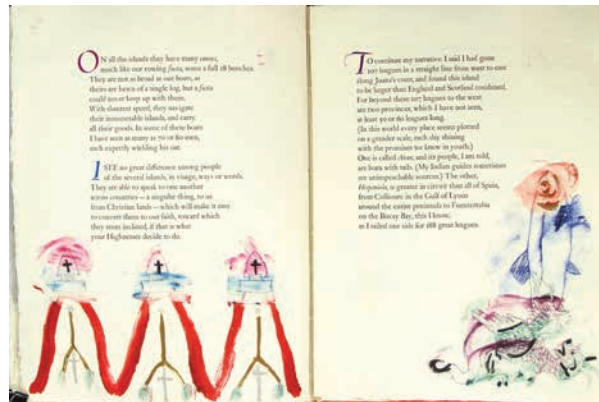 ON all the islands they have many canoes,
much like our rowing fusta, some a full 18 benches.
They are not as broad as our boats, as
theirs are hewn of a single log, but a fusta
could not keep up with them.
With shortest speed, they navigate
their innumerable islands, and carry
all their goods. In some of these boats
I have seen as many as 70 or 80 men,
each expertly wielding his oar.
I SEE no great difference among people
of the several islands, in visage, ways or words.
They are able to speak to one another
across countries — a singular thing, to us
from Christian lands — which will make it easy
to convert them to our faith, toward which
they seem inclined, if that is what
your Highnesses decide to do.
TO continue my narrative: I said I had gone
107 leagues in a straight line from west to east
along Juana's coast, and found this island
to be larger than England and Scotland combined.
For beyond these 107 leagues to the west
are two provinces, which I have not seen,
at least 50 or 60 leagues long.
(In this world every place seems plotted
on a grander scale, each day shining
with the promises we knew in youth.)
One is called and its people, I am told,
are born with tails. (My Indian guides sometimes
are unimpeachable sources.) The other,
Hispaniola, is greater in circuit than all of Spain,
from Collioure in the Gulf of Lyons
around the entire peninsula to Fuenterrabia
on the Biscay Bay, this I know,
as I sailed one side for 188 great leagues.